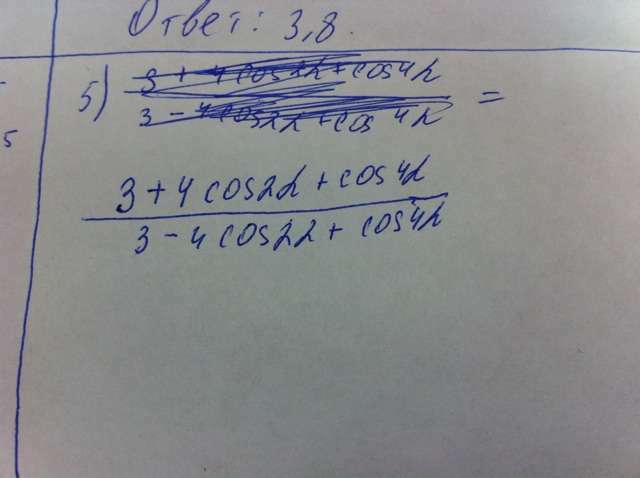 Ответ: 3,8.
5) 3 + 4 cos2α + cos4α
3 - 4 cos2α + cos 4α =
3 + 4 cos2α + cos4α
3 - 4 cos2α + cos4α
5